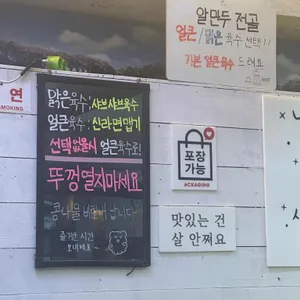 알만두 전골
얼큰/맑은 육수 선택!!
기본 얼큰육수 드려요
연
SMOKING
맑은육수: 샤브샤브육수
얼큰육수: 신라면맵기
선택 없을시 얼큰육수로!
뚜껑 열지마세요
콩나물 비린내 납니다
즐거운 시간
보내세요~
포장
가능
PACKAGING
맛있는 건
살 안쪄요